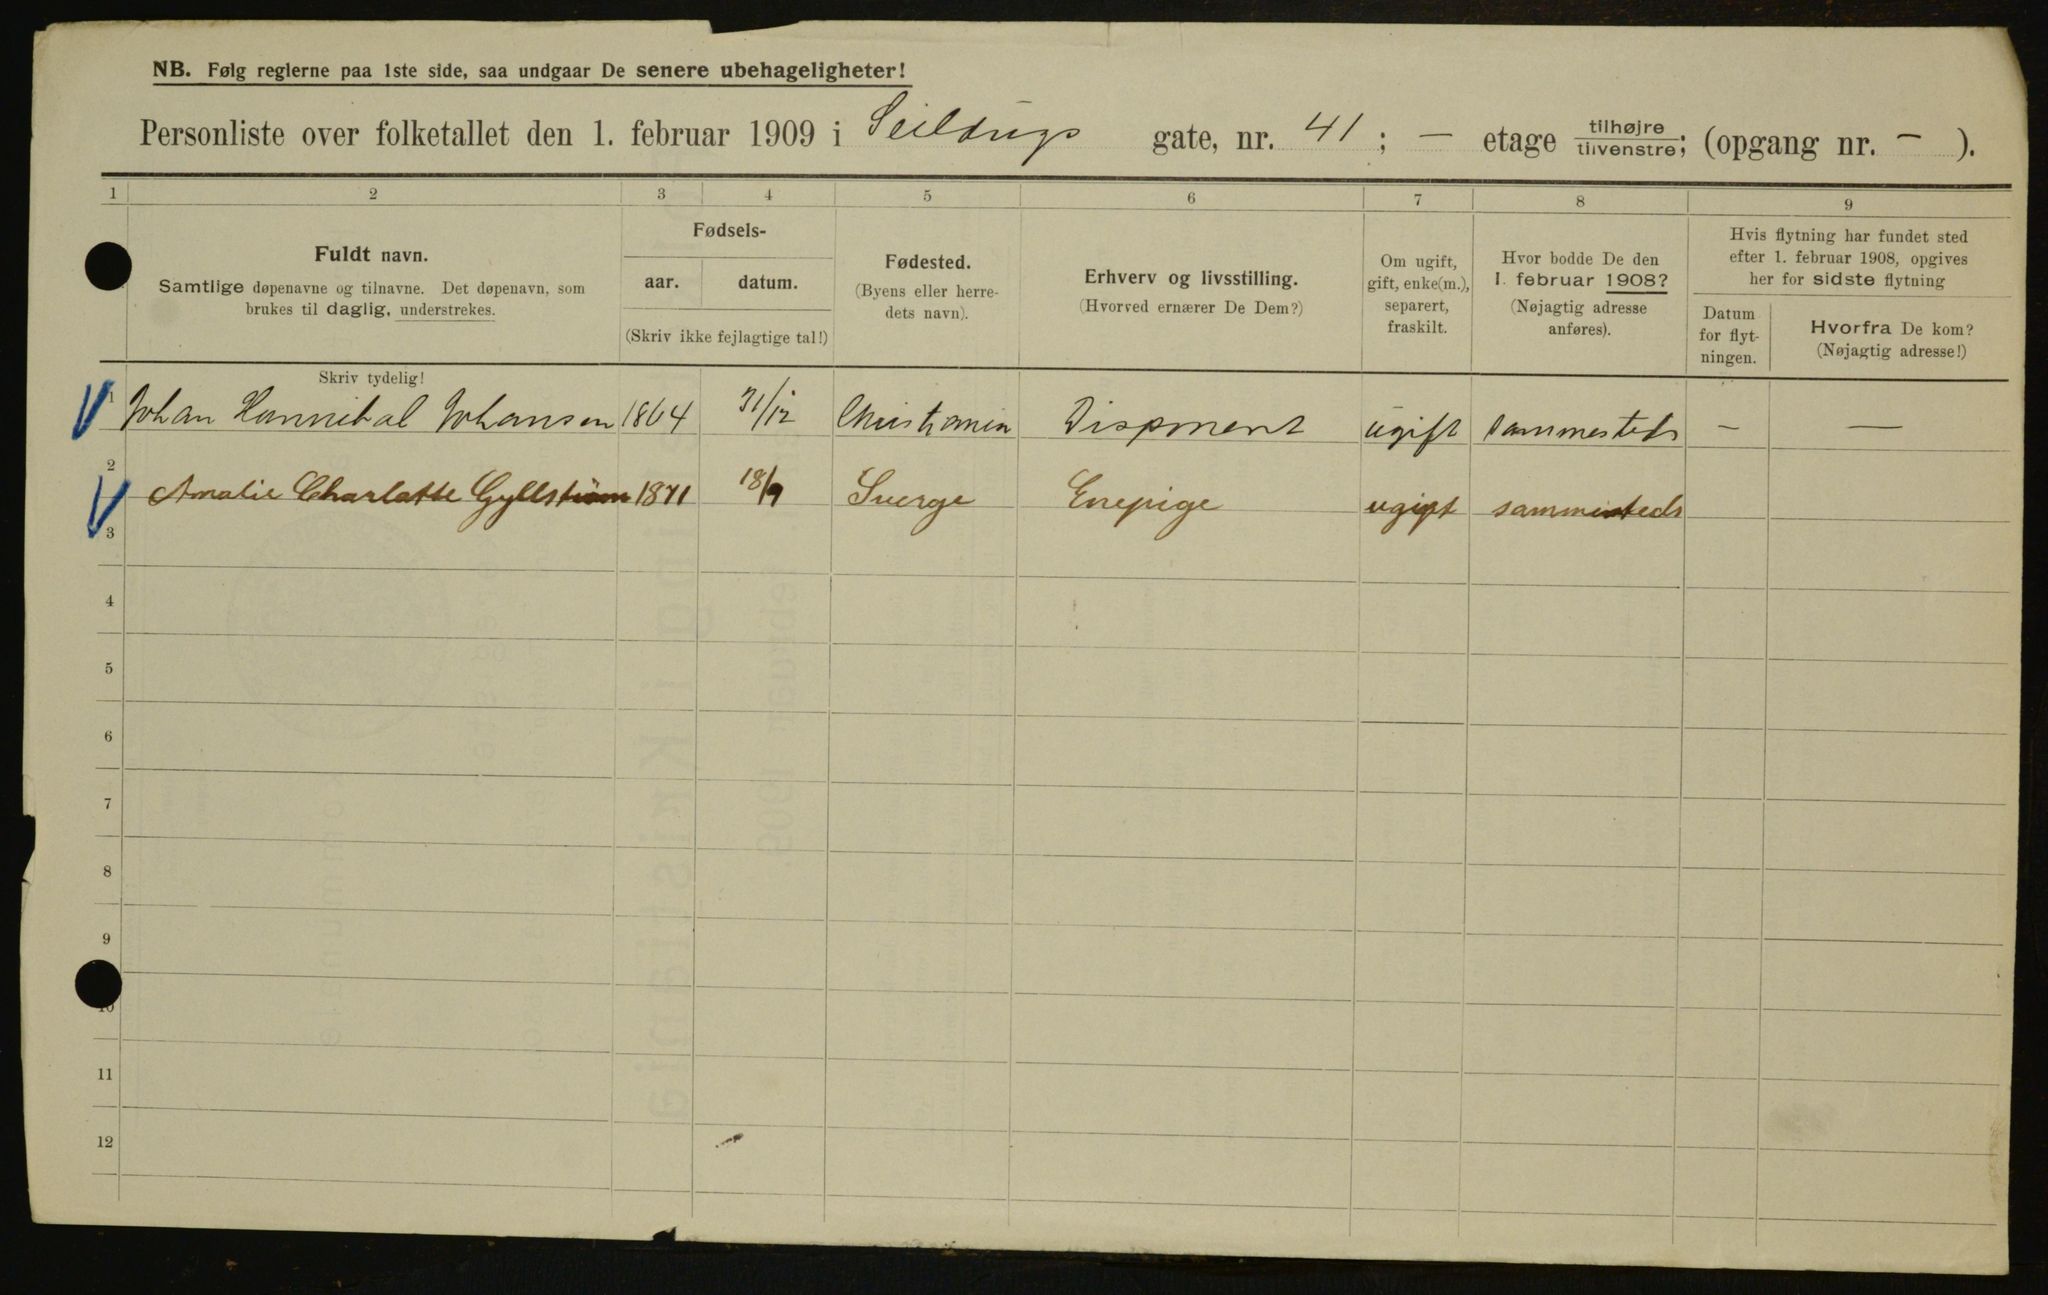 NB. Følg reglerne paa 1ste side, saa undgaar De senere ubehageligheter!
Personliste over folketallet den 1. februar 1909 i Seildugs gate, nr. 41; — etage tilhøjre tilvenstre; (opgang nr. - ).
1 2 3 4 5 6 7 8 9
Fuldt navn.
Samtlige døpenavne og tilnavne. Det døpenavn, som
brukes til daglig, understrekes.
Skriv tydelig!
Fødsels-
aar. datum.
(Skriv ikke fejlagtige tal!)
Fødested.
(Byens eller herre-
dets navn).
Erhverv og livsstilling.
(Hvorved ernærer De Dem?)
Om ugift,
gift, enke(m.),
separert,
fraskilt.
Hvor bodde De den
1. februar 1908?
(Nøjagtig adresse
anføres).
Hvis flytning har fundet sted
efter 1. februar 1908, opgives
her for sidste flytning
Datum
for flyt-
ningen.
Hvorfra De kom?
(Nøjagtig adresse!)
1 Johan Hannibal Johansen 1864 31/12 Christiania Disponent ugift sammesteds — —
2 Amalie Charlotte Gyllstrøm 1871 18/9 Sverge Enepige ugift sammesteds
3
4
5
6
7
8
9
10
11
12